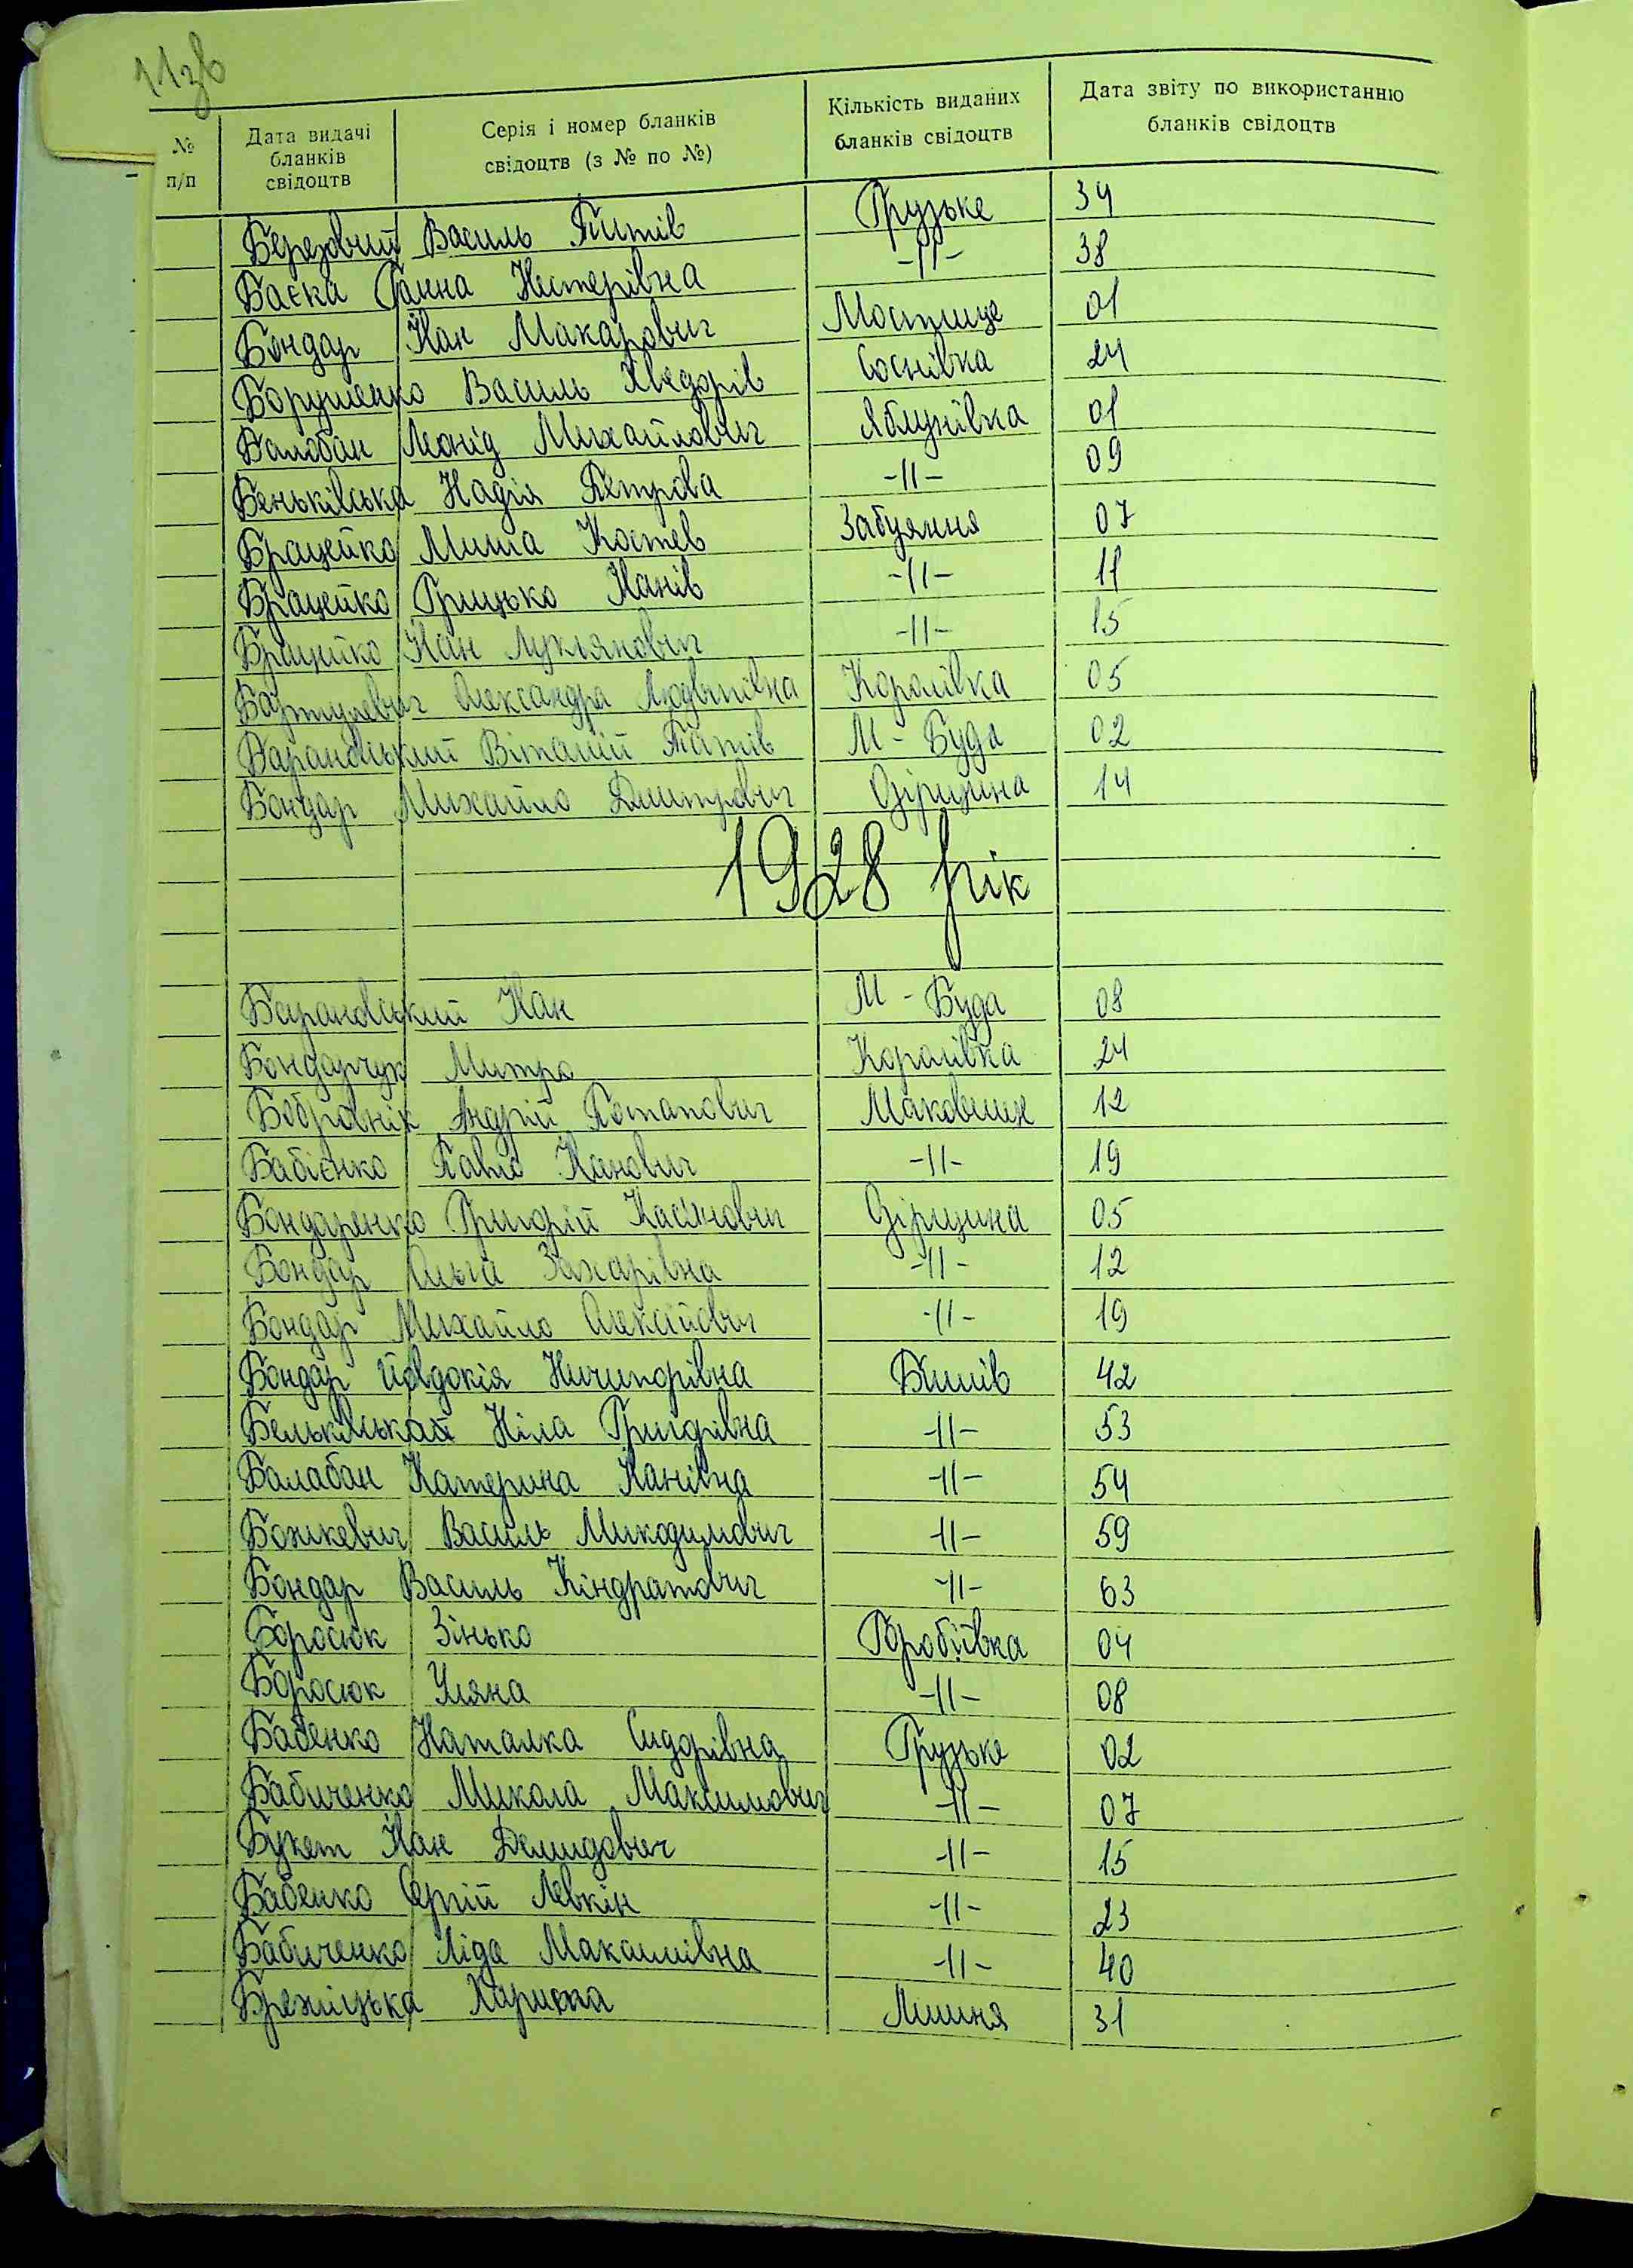 11зв
№ п/п
Дата видачі бланків свідоцтв
Серія і номер бланків свідоцтв (з № по №)
Кількість виданих бланків свідоцтв
Дата звіту по використанню бланків свідоцтв
Березовий Василь Титів Грузьке 34
Баєка Ганна Нестерівна -11- 38
Бондар Іван Макарович Мостище 01
Борушенко Василь Хведорів Соснівка 24
Балабан Леонід Михайлович Яблунівка 01
Беньківська Надія Петрова -11- 09
Брацейко Миша Костев Забуяння 07
Брацейко Грицько Іванів -11- 11
Брацейко Іван Лукянович -11- 15
Бартулевич Олександра Людвигівна Королівка 05
Барановський Віталій Титів М-Буда 02
Бондар Михайло Дмитрович Фірщина 14
1928 рік
Барановський Іван М-Буда 08
Бондарчук Митро Королівка 24
Бобровнік Андрій Потапович Маковище 12
Бабієнко Павло Іванович -11- 19
Бондаренко Григорій Касянович Фірщина 05
Бондар Ольга Захарівна -11- 12
Бондар Михайло Олексійович -11- 19
Бондар Йовдокія Ничипорівна Бишів 42
Бельківська Ніла Григорівна -11- 53
Балабан Катерина Іванівна -11- 54
Божкевич Василь Микодимович -11- 59
Бондар Василь Кіндратович -11- 63
Боросюк Зінько Горобіївка 04
Боросюк Уляна -11- 08
Бабенко Наталка Сидорівна Грузьке 02
Бабиченко Микола Максимович -11- 07
Букет Іван Демидович -11- 15
Бабенко Сергій Левкін -11- 23
Бабиченко Ліда Максимівна -11- 40
Брежицька Лишня 31